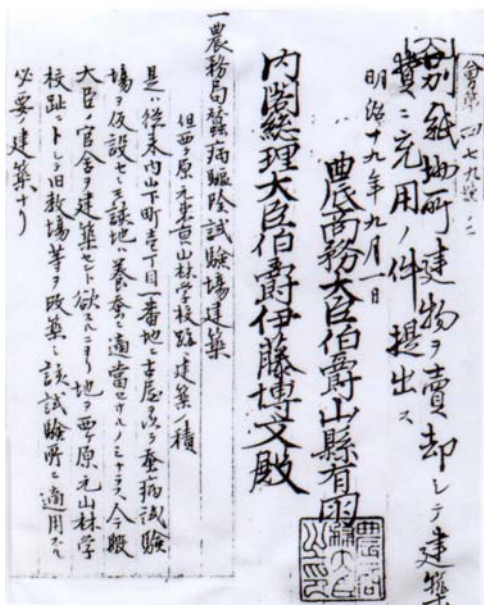 會第四七九號ノ二
別紙地所建物ヲ賣却シテ建築
費ニ充用ノ件提出ス
明治十九年九月一日
農商務大臣伯爵山縣有朋
内閣總理大臣伯爵伊藤博文殿
一農務局蚕病驅除試驗場建築
但西ヶ原元東京山林学校跡ニ建築ノ積
是ハ従来内山下町壱丁目一番地ニ古屋ヲ以テ蚕病試驗
場ヲ仮設セシモ該地ハ養蚕ニ適當セサルノミナラス今般
大臣ノ官舎ヲ建築セント欲スルニヨリ地ヲ西ヶ原元山林学
校趾ニトシ旧教場等ヲ改築シ該試驗所ニ適用スル
必要ノ建築ナリ